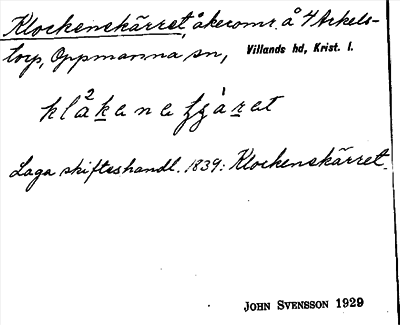 Klockenskärret, åkeromr. å 4 Arkels-
torp, Oppmanna sn, Villands hd, Krist. l.
Laga skifteshandl. 1839: Klockenskärret.
JOHN SVENSSON 1929